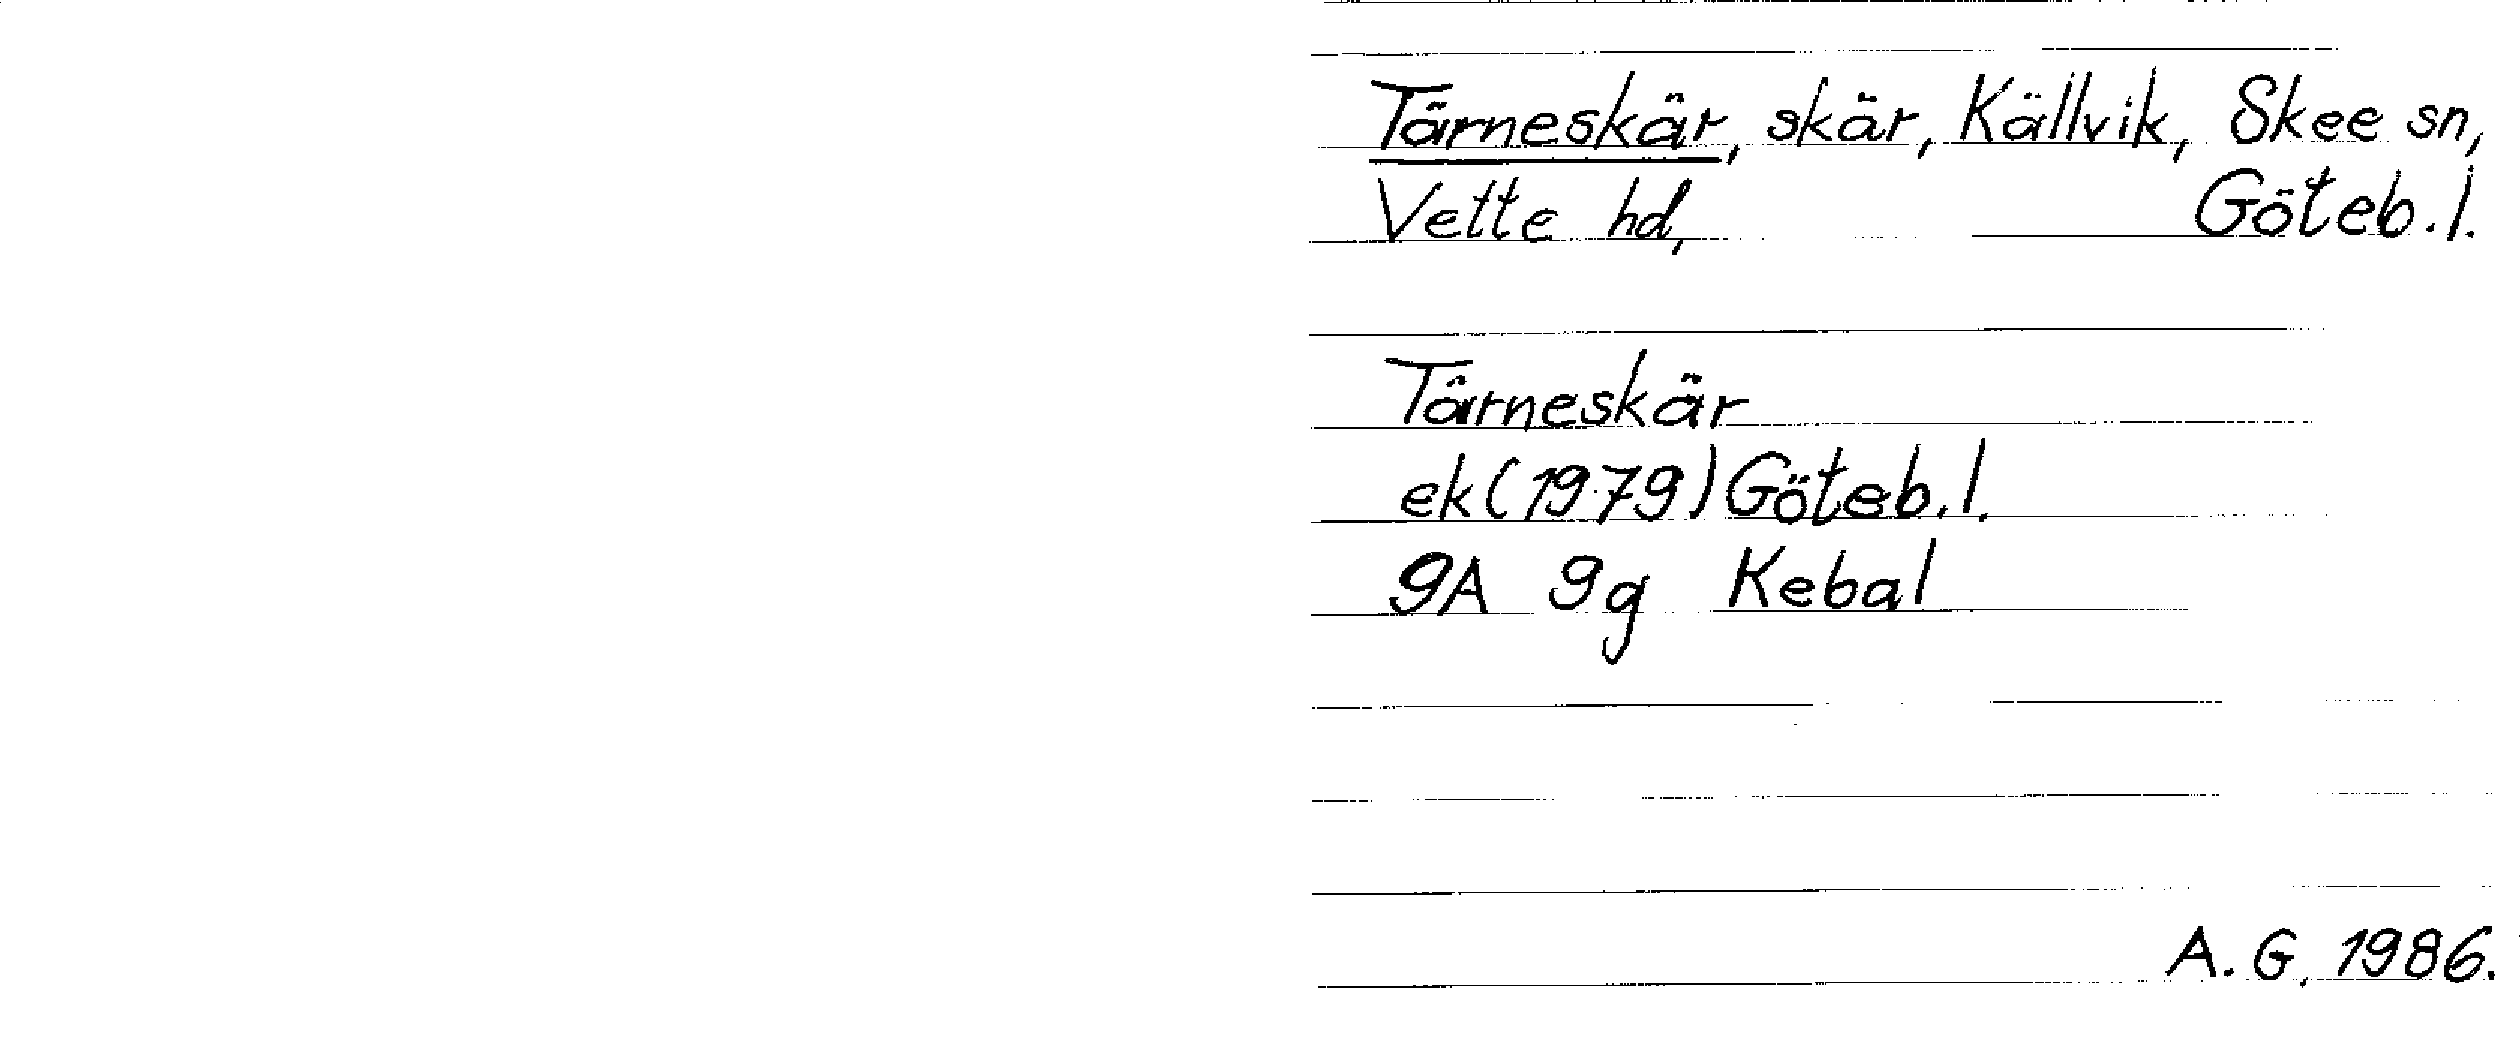 Tärneskär, skär, Källvik, Skee sn,
Vette hd, Göteb. l.
Tärneskär
ek (1979) Göteb. l.
9A 9g Kebal
A. G. 1986.